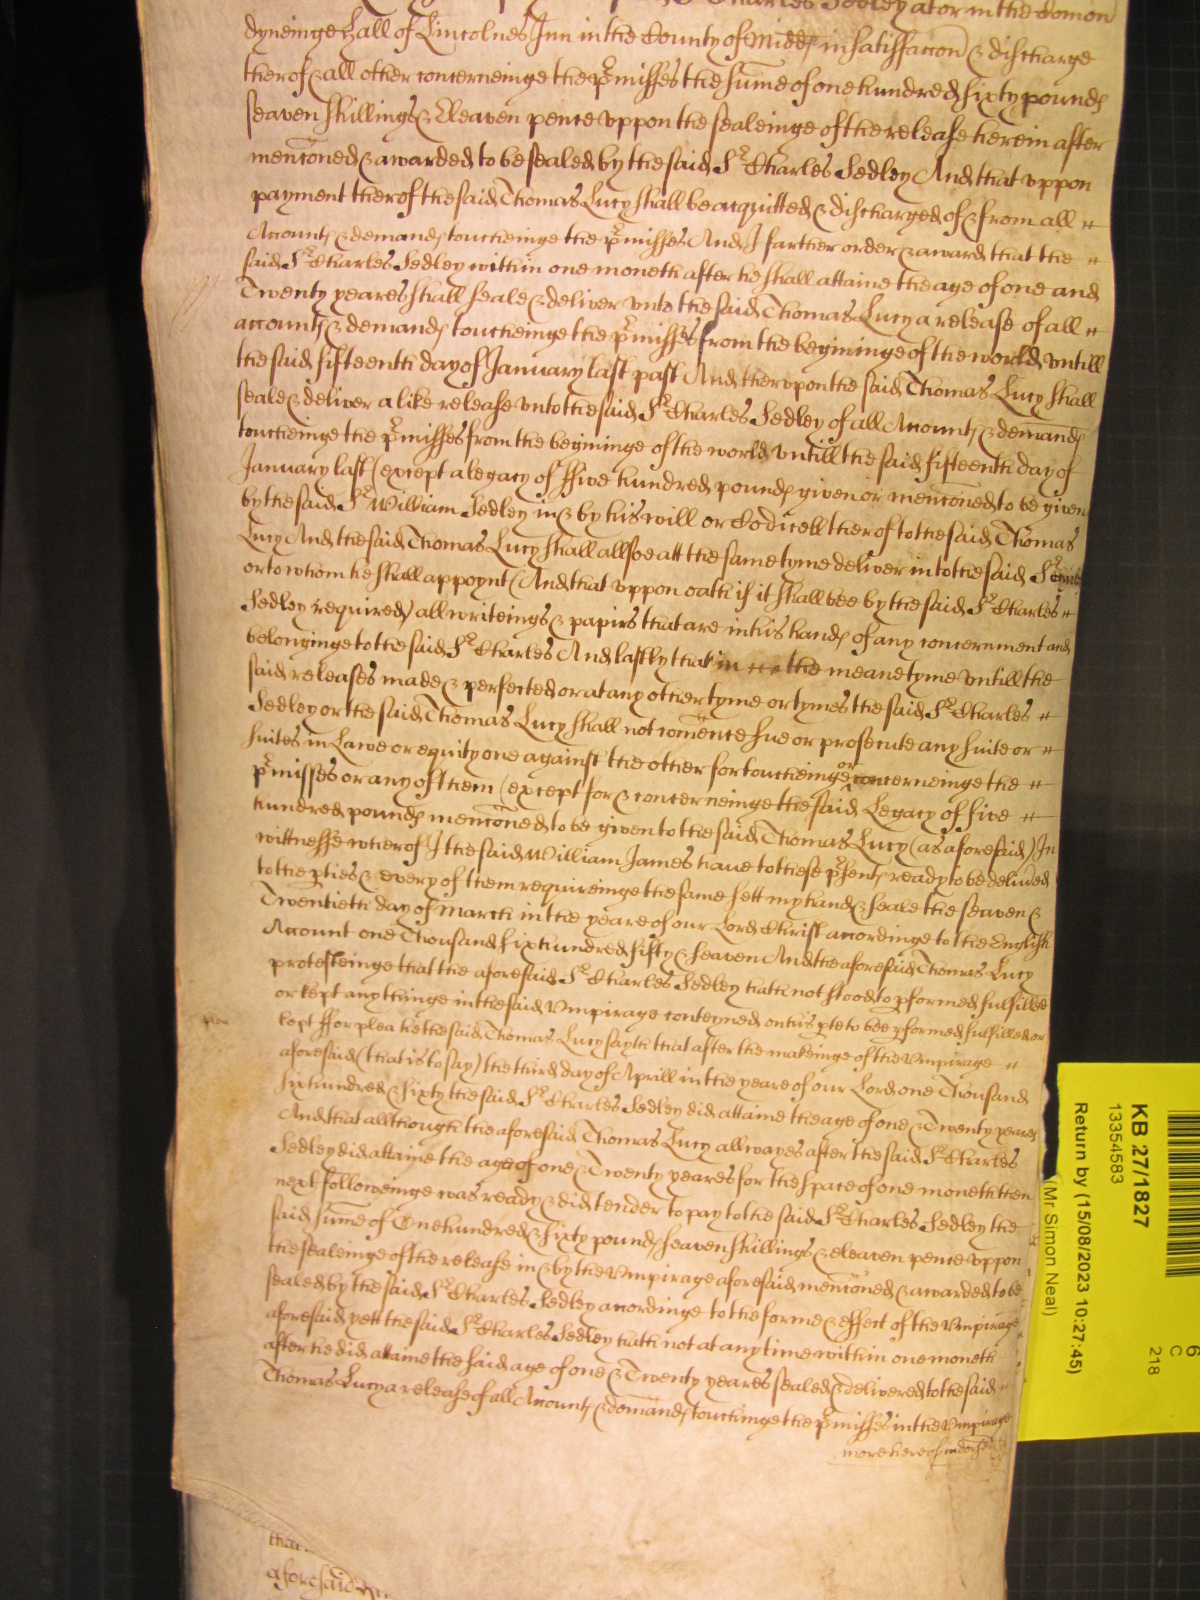 Charles Sedley att or in the Comon
dyneinge Hall of Lincolnes Inn in the County of Midd in satisfaccon & discharge
therof & all other concerneinge the p'misses the sume of one hundred sixty pounds
seaven shillings & Eleaven pence vppon the sealeinge of the release herein after
menconed & awarded to be sealed by the said Sr Charles Sedley And that vppon
payment therof the said Thomas Lucy shall be acquitted & discharged of & from all "
Accounts & demands toucheinge the p'misses And I farther order & award that the "
said Sr Charles Sedley within one moneth after he shall attaine the age of one and
Twenty yeares shall seale & deliver vnto the said Thomas Lucy a release of all "
accounts & demands toucheinge the p'misses from the begininge of the world vntill
the said fifteenth day of January last past And thervpon the said Thomas Lucy shall
seale & deliver a like release vnto the said Sr Charles Sedley of all Accounts & demands
toucheinge the p'misses from the begininge of the world vntill the said fifteenth day of
January last (except a legacy of ffive hundred pounds given or menconed to be given
by the said Sr William Sedley in & by his will or Codicell therof to the said Thomas
Lucy And the said Thomas Lucy shall allsoe att the same tyme deliver in to the said Sr
or to whom he shall appoynt (And that vppon oath if it shall bee by the said Sr Charles "
Sedley required) all writeings & papirs that are in his hands of any concernment and
belonginge to the said Sr Charles And lastly that in the meane tyme vntill the
said releases made & perfected or at any other tyme or tymes the said Sr Charles "
Sedley or the said Thomas Lucy shall not comence sue or prosecute any suite or "
suites in Lawe or equity one against the other for toucheinge or concerneinge the "
p'misses or any of them (except for & concerneinge the said Legacy of five "
hundred pounds menconed to be given to the said Thomas Lucy (as aforesaid) In
wittnesse wherof I the said William James haue to these p'sents ready to be deliu'ed
to the pties & every of them requireinge the same sett my hand & seale the seaven &
Twentieth day of March in the yeare of our Lord Christ accordinge to the English
Account one Thousand six hundred fifty & seaven And the aforesaid Thomas Lucy
protesteinge that the aforesaid Sr Charles Sedley hath not stood to pformed fulfilled
or kept any thinge in the said Vmpirage conteyned on his pte to bee pformed fulfilled or
kept ffor plea hee the said Thomas Lucy sayth that after the makeinge of the Vmpirage "
aforesaid (that is to say) the third day of Aprill in the yeare of our Lord one Thousand
six hundred & sixty the said Sr Charles Sedley did attaine the age of one & Twenty yeares
And that allthough the aforesaid Thomas Lucy allwayes after the said Sr Charles
Sedley did attaine the age of one & Twenty yeares for the space of one moneth then
next followeinge was ready & did tender to pay to the said Sr Charles Sedley the
said sume of One hundred & sixty pounds seaven shillings & eleaven pence vppon
the sealeinge of the release in & by the Vmpirage aforesaid menconed & awarded to be
sealed by the said Sr Charles Sedley accordinge to the forme & effect of the Vmpirage
aforesaid yett the said Sr Charles Sedley hath not at any time within one moneth
after he did attaine the said age of one & Twenty yeares sealed & delivered to the said "
Thomas Lucy a release of all Accounts & demands touchinge the p'misses in the Vmpirage
more hereof indorsed
aforesaid
KB 27/1827
13354583
Return by (15/08/2023 10:27:45)
(Mr Simon Neal)
6
C
218